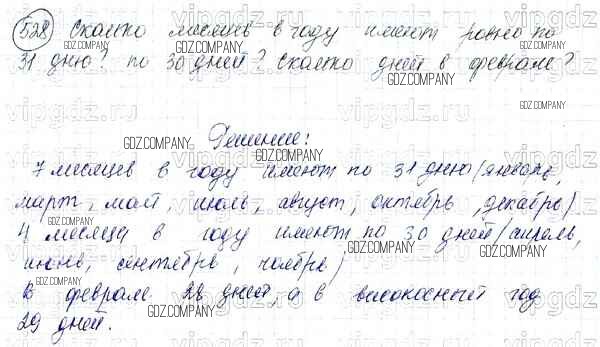 528) Сколько месяцев в году имеют ровно по
31 дню? по 30 дней? Сколько дней в феврале?
Решение:
7 месяцев в году имеют по 31 дню (январь,
март, май, июль, август, октябрь, декабрь)
4 месяца в году имеют по 30 дней (апрель,
июнь, сентябрь, ноябрь)
В феврале 28 дней, а в високосный год
29 дней.
GDZ.COMPANY
vipgdz.ru